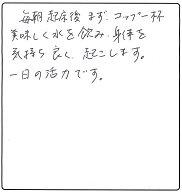 毎朝起床後まず、コップ一杯
美味しく水を飲み、身体を
気持ち良く、起こします。
一日の活力です。